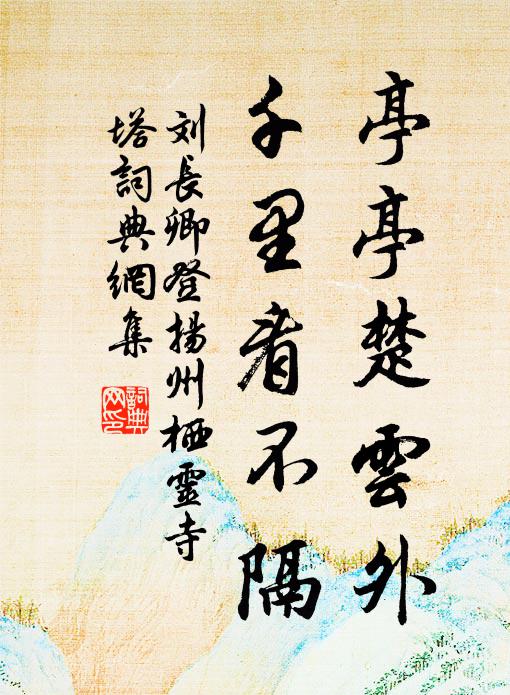 亭亭楚雲外
千里看不隔
刘長卿登揚州栖靈寺
塔詞典網集
詞典
网印